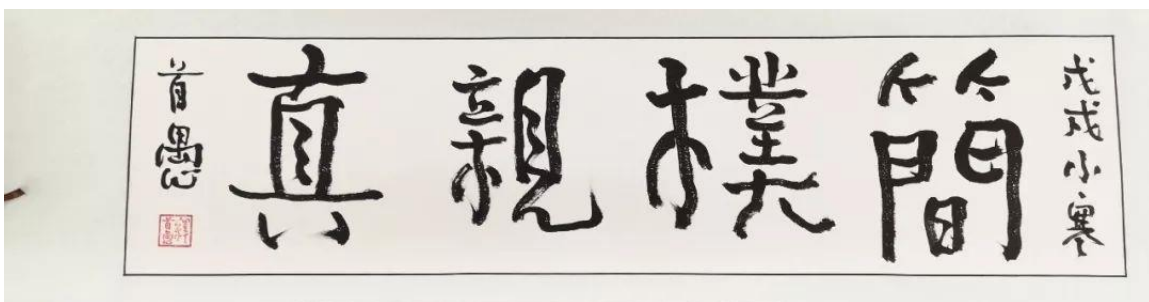 戊戌小寒
簡樸親真
首愚